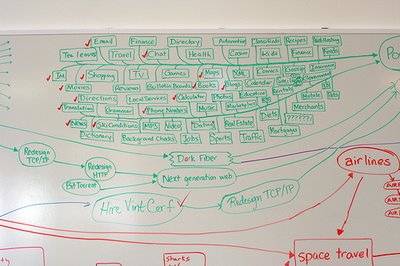 Email Finance Directory Automotive Classifieds Recipes
Tea leaves Travel Chat Health Casino Kids Finance Feeds
IM Shopping TV Games Maps XML Comics Gossip Insurance
Movies Reviews Bulletin Boards Books Blogs Calendar Government
Directions Local Services Calculator Photos Education Rentals Mobile Pets
Translation Grammar Phone Numbers Music Marketplace Bills Models Arts
News Ski Conditions MP3 Video Dating Real Estate Diets ??????? Merchants
Dictionary Background Checks Jobs Sports Traffic Mortgages
Dark Fiber
Redesign TCP/IP
Redesign HTTP
BitTorrent
Next generation web
airlines
Hire Vint Cerf
Redesign TCP/IP
space travel
Sharks